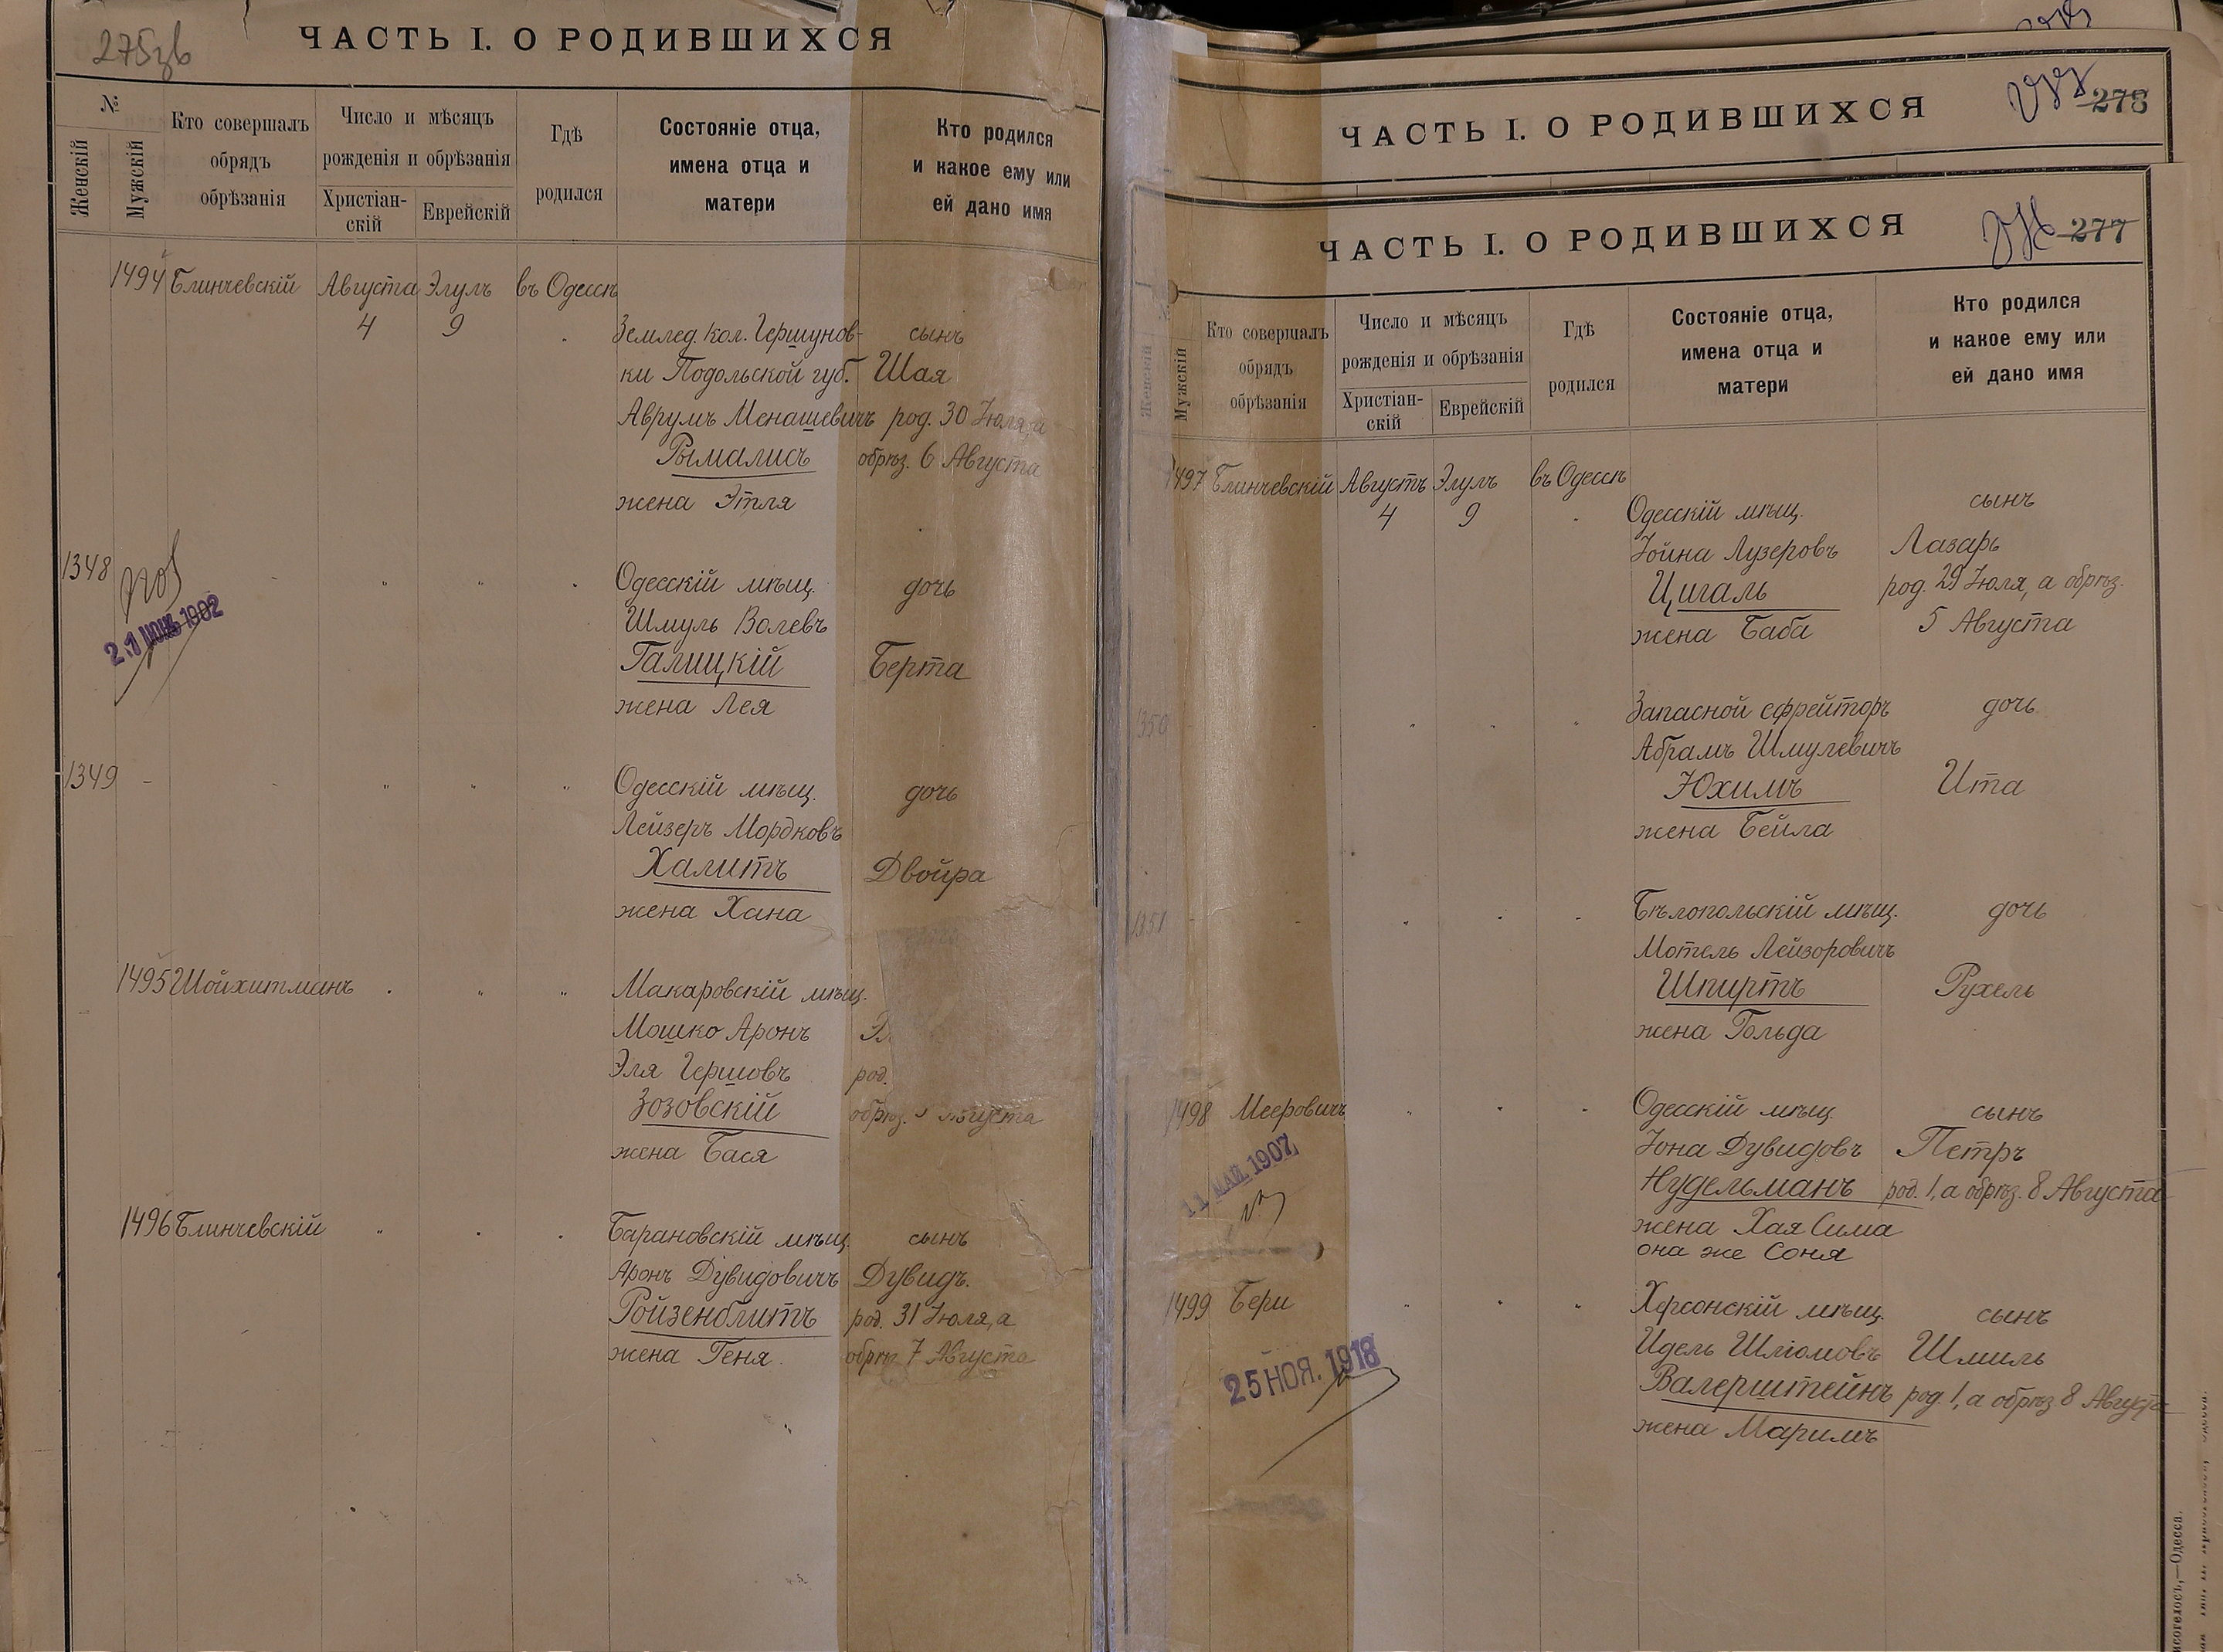 275зв
ЧАСТЬ I. О РОДИВШИХСЯ
№
Женскій
Мужскій
Кто совершалъ
обрядъ
обрѣзанія
Число и мѣсяцъ
рожденія и обрѣзанія
Христіан-
скій
Еврейскій
Гдѣ
родился
Состояніе отца,
имена отца и
матери
Кто родился
и какое ему или
ей дано имя
1494 Блинчевскій Августа Элулъ въ Одессѣ
4 9
Землед. кол. Гершунов- сынъ
ки Подольской губ. Шая
Аврумъ Менашевичъ род. 30 Іюля, а
Рымалисъ обрѣз. 6 Августа
жена Этля
1348 Одесскій мѣщ. дочь
21 1902
Шмуль Волевъ
Галицкій Берта
жена Лея
1349 - Одесскій мѣщ. дочь
Лейзеръ Мордковъ
Халитъ Двойра
жена Хана
1495 Шойхитманъ Макаровскій мѣщ.
Мошко Аронъ
Эля Гершовъ род.
Зозовскій обрѣз. Августа
жена Бася
1496 Блинчевскій Барановскій мѣщ. сынъ
Аронъ Дувидовичъ Дувидъ.
Ройзенблитъ род. 31 Іюля, а
жена Геня. обрѣз 7 Августа
ЧАСТЬ I. О РОДИВШИХСЯ
278
ЧАСТЬ I. О РОДИВШИХСЯ
277
Женскій
Мужскій
Кто совершалъ
обрядъ
обрѣзанія
Число и мѣсяцъ
рожденія и обрѣзанія
Христіан-
скій
Еврейскій
Гдѣ
родился
Состояніе отца,
имена отца и
матери
Кто родился
и какое ему или
ей дано имя
1497 Блинчевскій Августъ Элулъ въ Одессѣ
4 9
Одесскій мѣщ. сынъ
Іойна Лузеровъ Лазарь
Цигаль род. 29 Іюля, а обрѣз.
жена Баба 5 Августа
1350 Запасной ефрейторъ дочь
Абрамъ Шмулевичъ
Юхимъ Ита
жена Бейла
1351 Бѣлопольскій мѣщ. дочь
Мотель Лейзоровичъ
Шпиртъ Рухель
жена Гольда
1498 Мееровичъ Одесскій мѣщ. сынъ
11 МАЙ 1907
Іона Дувидовъ Петръ
Нудельманъ род. 1, а обрѣз. 8 Августа
жена Хая Сима
она же Соня
1499 Бери Херсонскій мѣщ. сынъ
25 НОЯ. 1918
Идель Шліомовъ Шмиль
Валерштейнъ род. 1, а обрѣз 8 Августа
жена Маримъ
—Одесса.